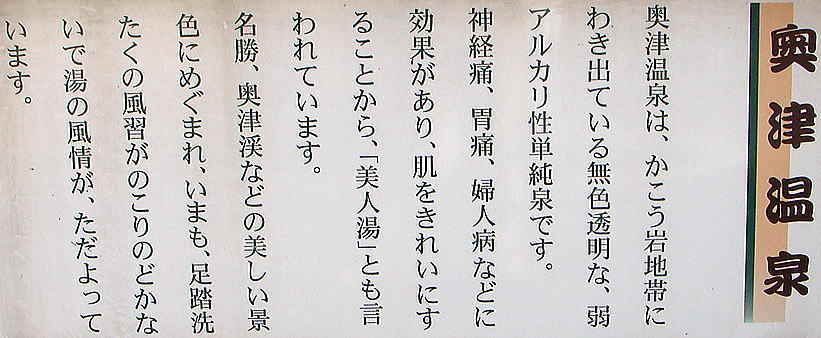 奥津温泉
奥津温泉は、かこう岩地帯に
わき出ている無色透明な、弱
アルカリ性単純泉です。
神経痛、胃痛、婦人病などに
効果があり、肌をきれいにす
ることから、「美人湯」とも言
われています。
名勝、奥津渓などの美しい景
色にめぐまれ、いまも、足踏洗
たくの風習がのこりのどかな
いで湯の風情が、ただよって
います。